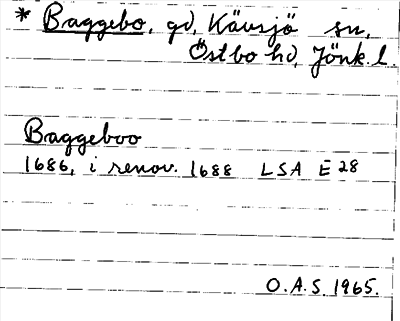 * Baggebo, gd, Kävsjö sn,
Östbo hd, Jönk. l.
Baggeboo
1686, i renov. 1688 LSA E 28
O.A.S. 1965.